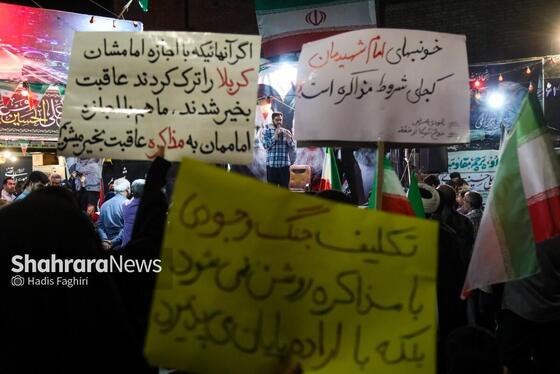 اگر آنهائیکه با اجازه امامشان
کربلا را ترک کردند عاقبت
بخیر شدند، ما هم با اجازه
اماممان به مذاکره عاقبت بخیر میشیم
خونبهای امام شهیدمان
کجای شروط مذاکره است
تکلیف جنگ وجودی
با مذاکره روشن نمی شود
بلکه با اراده پایان می پذیرد
ShahraraNews
© Hadis Faghiri